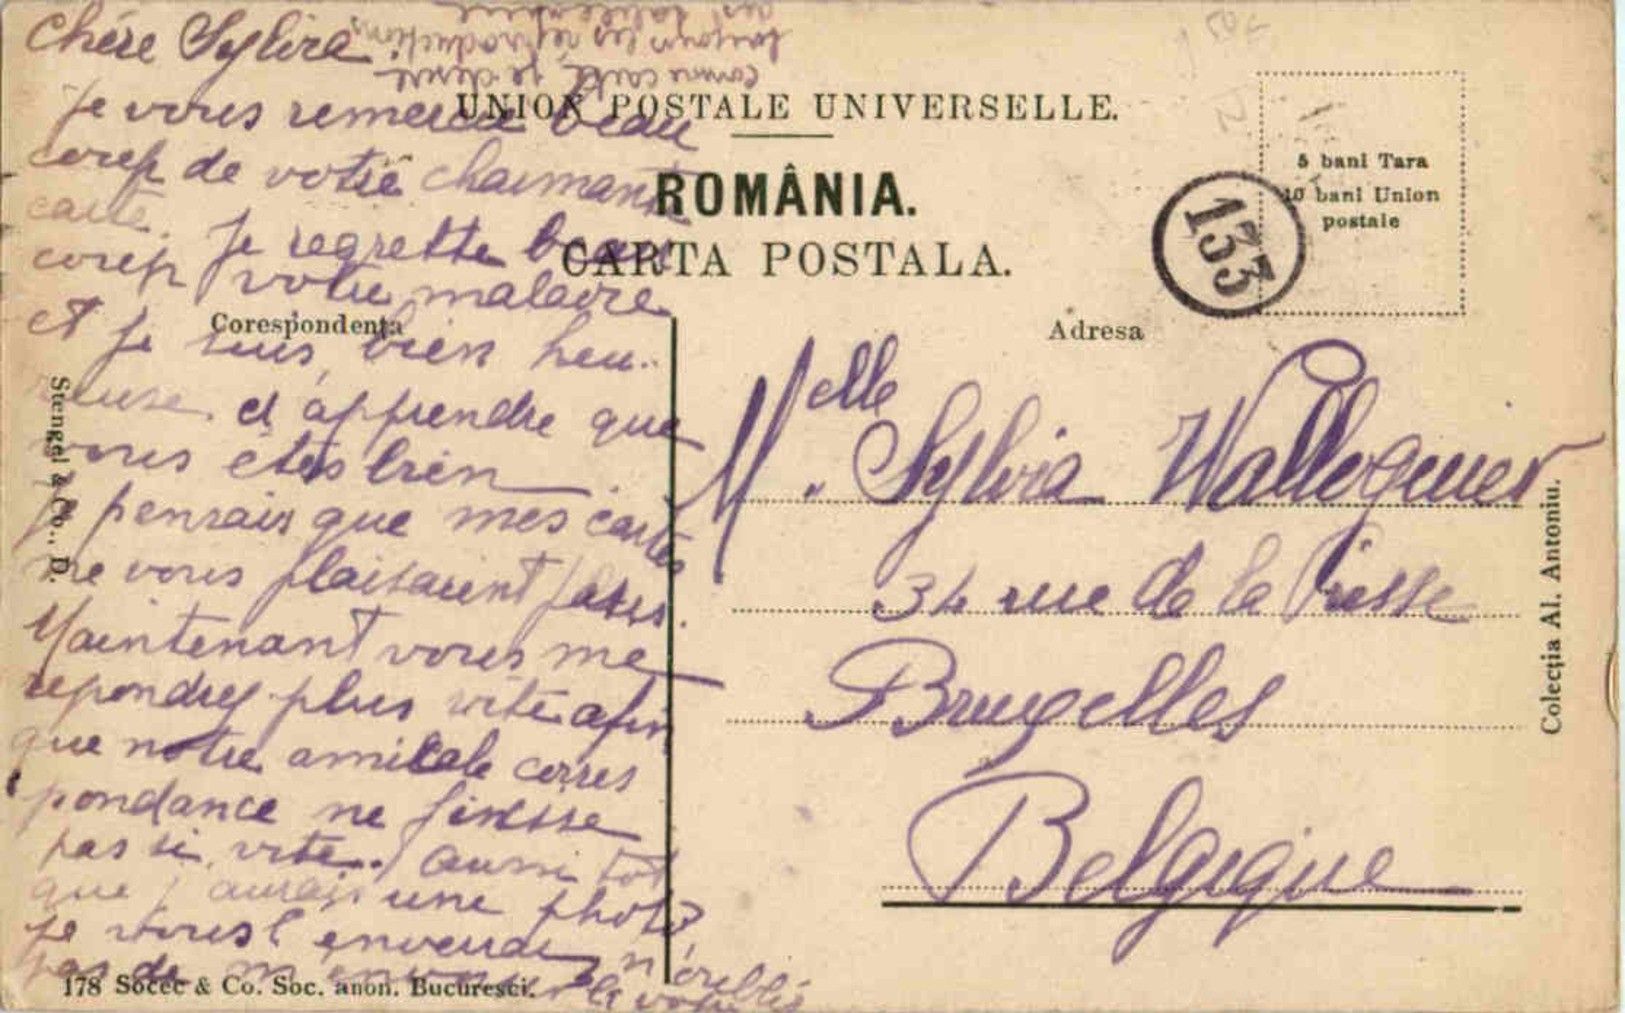 Chère Sylvia.
Je vous remercie beau
coup de votre charmante
carte. Je regrette beau
coup votre maladie
et je suis bien heu-
reuse d'apprendre que
vous êtes bien
Je pensais que mes cartes
ne vous plaisaient pas.
Maintenant vous me
repondrez plus vite afin
que notre amicale corres
pondance ne finisse
pas si vite. Aussi tot
que j'aurais une photo,
je vous l'enverrai, n'oubliez
pas de m'envoyer la votre
comme carte, je désire
toujours les reproductions
UNION POSTALE UNIVERSELLE.
ROMÂNIA.
CARTA POSTALA.
Corespondența
Adresa
5 bani Tara
10 bani Union
postale
133
Melle Sylvia
34 rue de la
Bruxelles
Belgique
Stengel & Co., D.
Colecția Al. Antoniu.
178 Socec & Co. Soc. anon. Bucuresci.